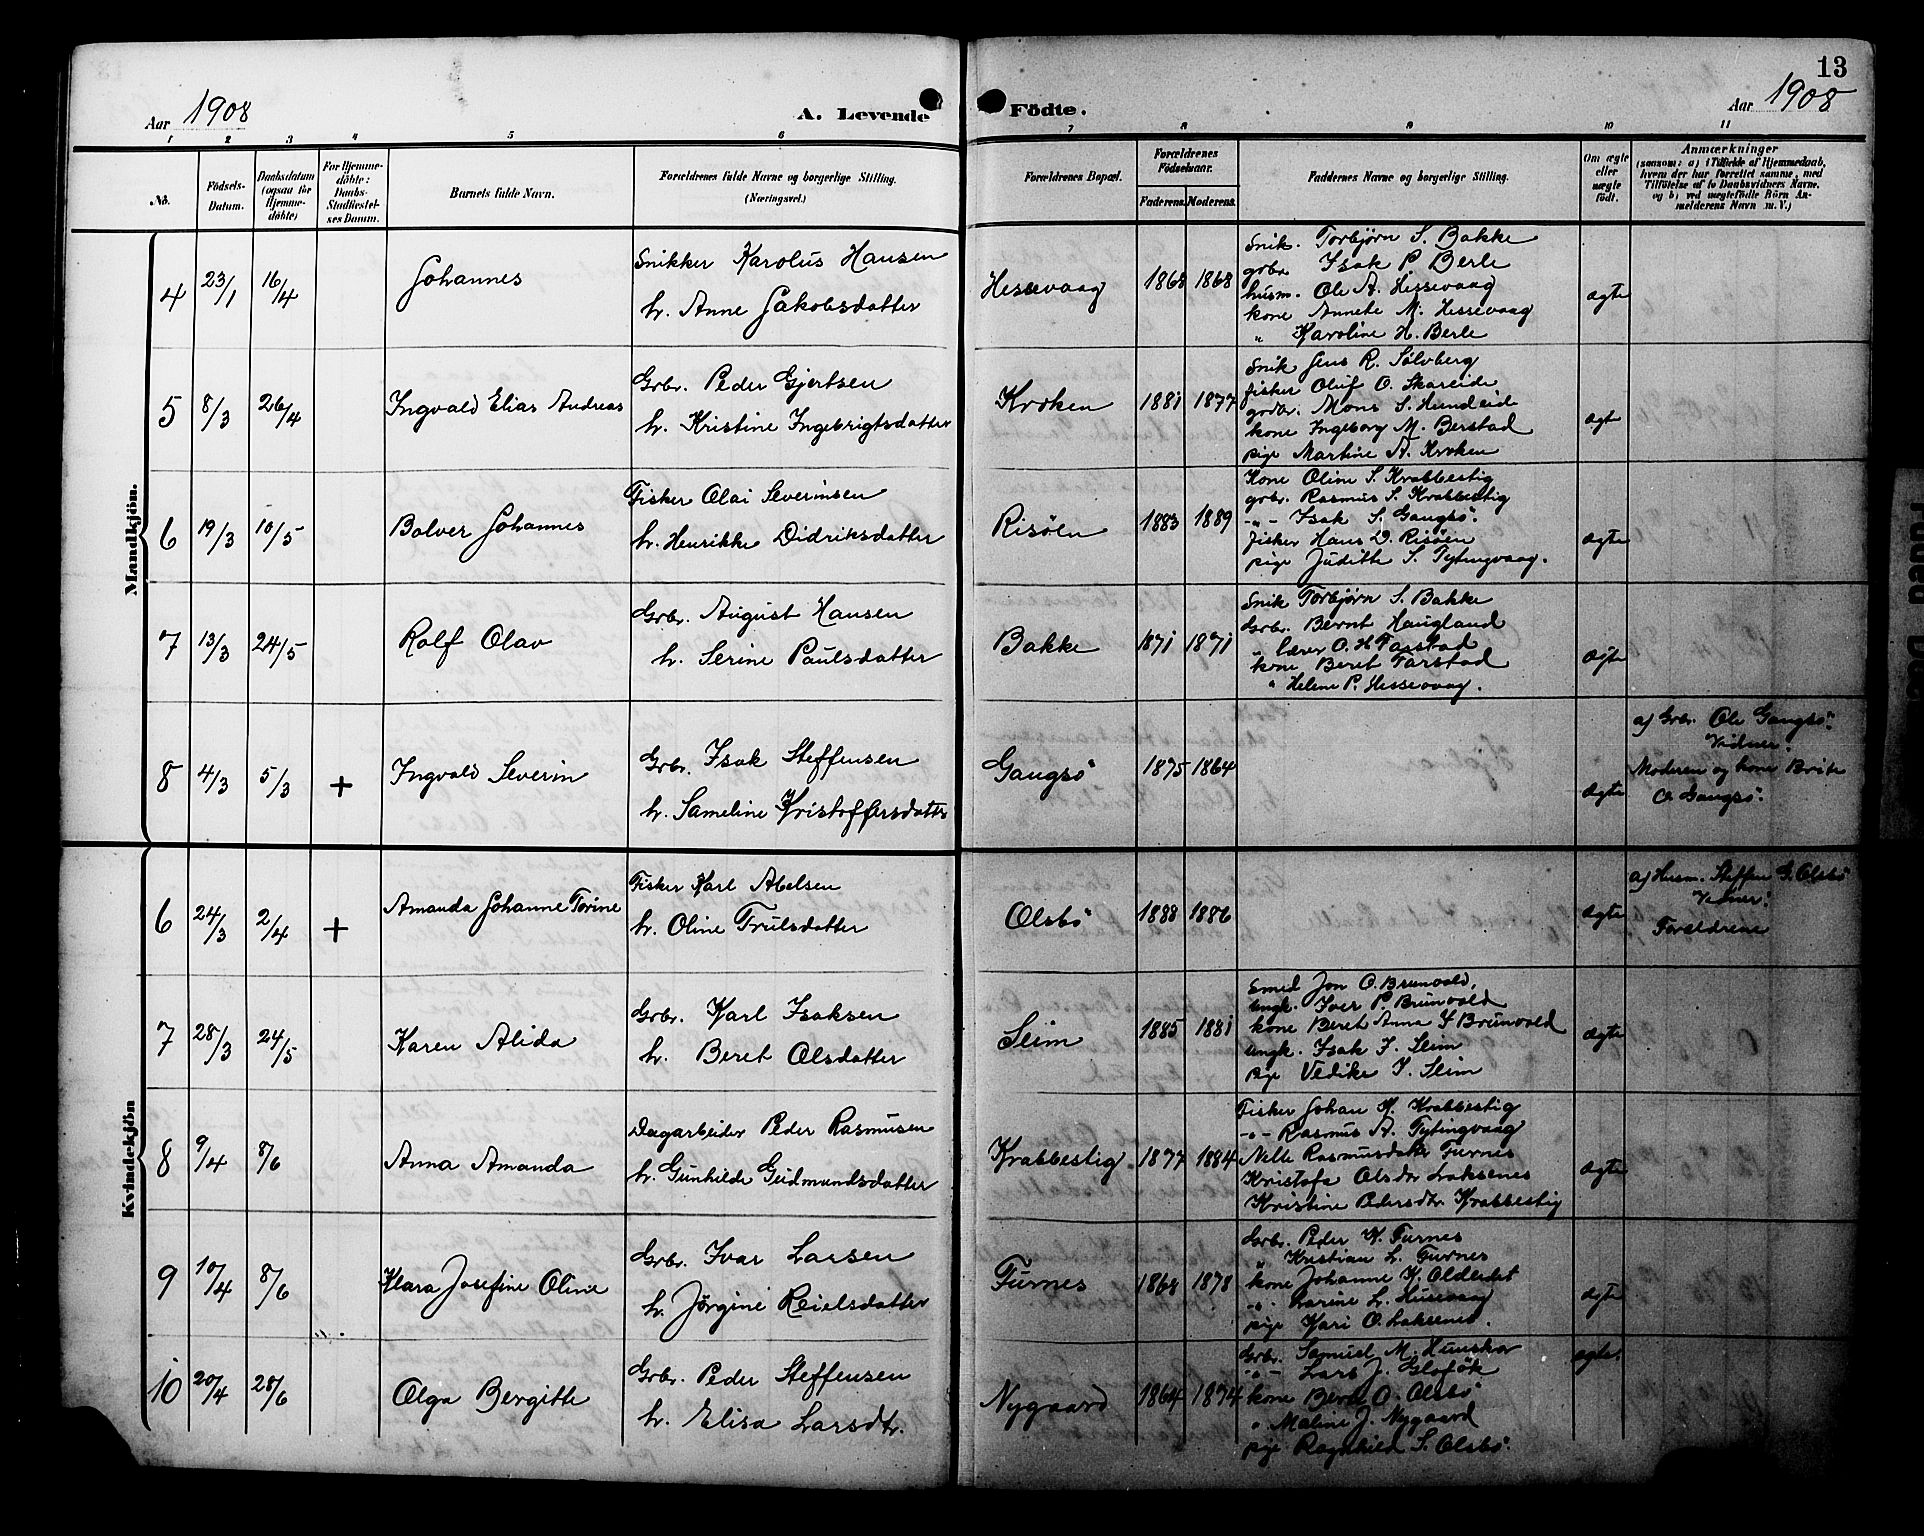 13
Aar 1908
A. Levende
Födte.
Aar 1908
1 2 3 4 5 6 7 8 9 10 11
No.
Födsels-Datum.
Daabsdatum (ogsaa for Hjemme-döbte)
For Hjemme-döbte: Daabs-Stadfæstel-ses Datum.
Barnets fulde Navn.
Forældrenes fulde Navne og borgerlige Stilling. (Næringsvei.)
Forældrenes Bopæl.
Forældrenes Födselsaar.
Faderens. Moderens.
Faddernes Navne og borgerlige Stilling.
Om ægte eller uægte født.
Anmærkninger
(saasom: a) i Tilfælde af Hjemmedaab,
hvem der har forrettet samme, med
Tilföielse af to Daabsvidners Navne,
og b) ved uægtefödte Börn An-
melderens Navn m. V.)
Mandkjön.
4 23/1 16/4 Johannes
Snikker Karolus Hansen
h. Anne Jakobsdatter
Hessevaag 1868 1868
Snik. Torbjørn S. Bakke
grbr Isak P Berle
husm. Ole A. Hessevaag
kone Annete M. Hessevaag
" Karoline H. Berle
ægte
5 8/3 26/4 Ingvald Elias Andreas
Grbr. Peder Gjertsen
h. Kristine Ingebrigtsdatter
Kroken 1881 1877
Snik Jens R. Sölvberg
fisker Oluf O. Skareide
grbr. Mons S. Hundeid
kone Ingeborg M. Berstad
pige Martine A. Kroken
ægt
6 19/3 10/5 Bolver Johannes
Fisker Olai Severinsen
h. Henrikke Didriksdatter
Risöen 1883 1889
Kone Oline S. Krabbestig
grbr. Rasmus S. Krabbestig
-"- Isak S. Gangsö.
fisker Hans D. Risöen
pige Juditte S. Tytingvaag.
ægte
7 13/3 24/5 Rolf Olav
Grbr. August Hansen
h. Serine Paulsdatter
Bakke 1871 1871
Snik Torbjørn S. Bakke
Grbr. Bernt Haugland
" lærer O. H Tarstad
kone Beret Tarstad
" Helene P. Hessevaag.
ægte
8 4/3 5/3 + Ingvald Severin
Grbr. Isak Steffensen
h. Sameline Kristoffersdatter
Gangsö 1875 1864
ægte
af Grbr. Ole Gangsö.
Vidner.
Moderen og kone Brite
O Gangsö.
Kvindekjön
6 24/3 2/4 + Amanda Johanne Torine
Fisker Karl Abelsen
h. Oline Trulsdatter
Olsbö 1888 1886
ægte
af Husm. Steffen G. Olsbö
Vidner.
Foreldrene
7 28/3 24/5 Karen Alida
Grbr. Karl Isaksen
h. Beret Olsdatter
Seim 1885 1881
Smed Jon O. Brunvold,
Ungk. Iver P. Brunvold
kone Beret Anna I Brunvold
Ungk. Isak I. Seim
pige Vedike I. Seim
ægte
8 9/4 8/6 Anna Amanda
Dagarbeider Peder Rasmusen
h. Gunhilde Gudmundsdatter
Krabbestig 1877 1884
Fisker Johan K. Krabbestig
-"- Rasmus A. Tytingvaag
Nelle Rasmusdatter Furnes
Kristofa Olsdtr Laksenes
Kristine Pedersdtr Krabbestig
ægte
9 10/4 8/6 Klara Josefine Oline
Grbr. Ivar Larsen
h. Jörgine Reielsdatter
Furnes 1868 1878
Grbr. Peder K. Furnes
" Kristian L. Furnes
kone Johanne K. Oldeidet
-"- Larine L. Husevaag
pige Kari O. Laksenes.
ægte
10 20/4 28/6 Olga Bergitte
Grbr. Peder Steffensen
h. Elisa Larsdtr.
Nygaard 1864 1874
Grbr. Samuel M. Hunskor
-"- Lars J.
kone Berte O. Olsbö
" Maline J. Nygaard
pige Ragnhild S. Olsbö.
ægte.